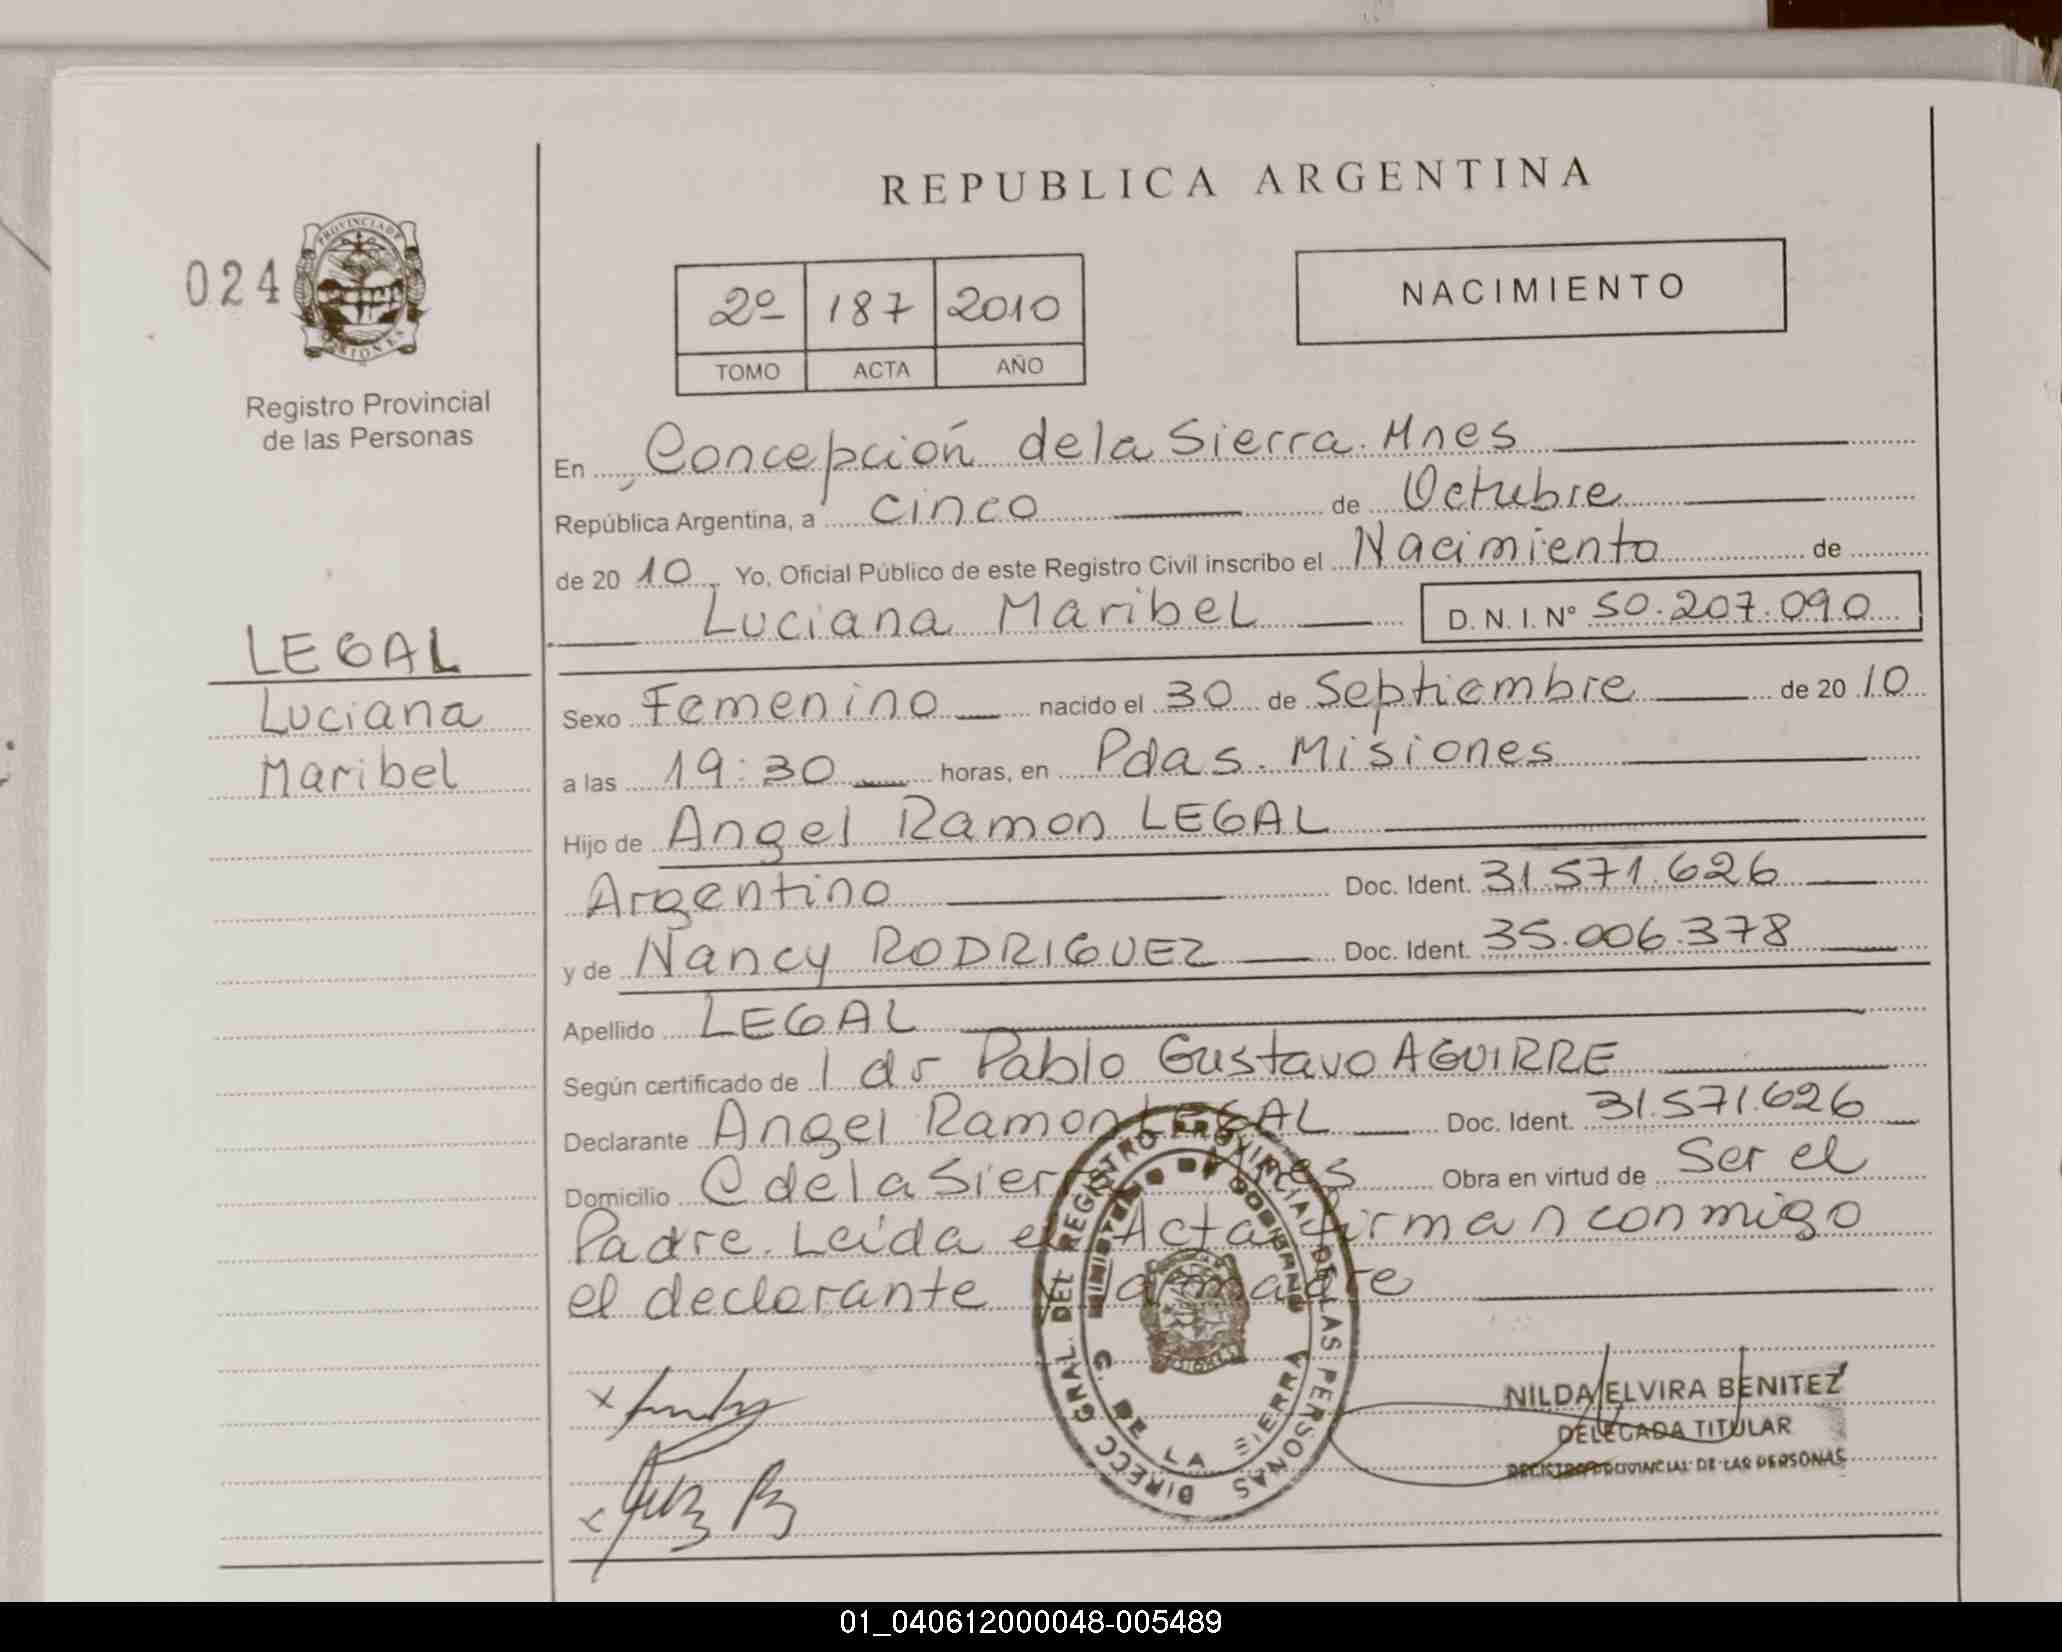 REPUBLICA ARGENTINA
024
PROVINCIA DE MISIONES
Registro Provincial
de las Personas
2º 187 2010
TOMO ACTA AÑO
NACIMIENTO
En Concepción de la Sierra. Mnes
República Argentina, a cinco de Octubre
de 2010, Yo, Oficial Público de este Registro Civil inscribo el Nacimiento de
Luciana Maribel D.N.I. Nº 50.207.090
LEGAL
Luciana
Maribel
Sexo Femenino nacido el 30 de Septiembre de 2010
a las 19:30 horas, en Pdas. Misiones
Hijo de Angel Ramon LEGAL
Argentino Doc. Ident. 31.571.626
y de Nancy RODRIGUEZ Doc. Ident. 35.006.378
Apellido LEGAL
Según certificado de l dr Pablo Gustavo AGUIRRE
Declarante Angel Ramon LEGAL Doc. Ident. 31.571.626
Domicilio C de la Sierra Mnes Obra en virtud de Ser el
Padre. Leída el Acta firman conmigo
el declarante y la madre
DIRECC GRAL. DEL REGISTRO PROVINCIAL DE LAS PERSONAS
MINISTERIO DE GOBIERNO
C. DE LA SIERRA
NILDA ELVIRA BENITEZ
DELEGADA TITULAR
REGISTRO PROVINCIAL DE LAS PERSONAS
01_040612000048-005489